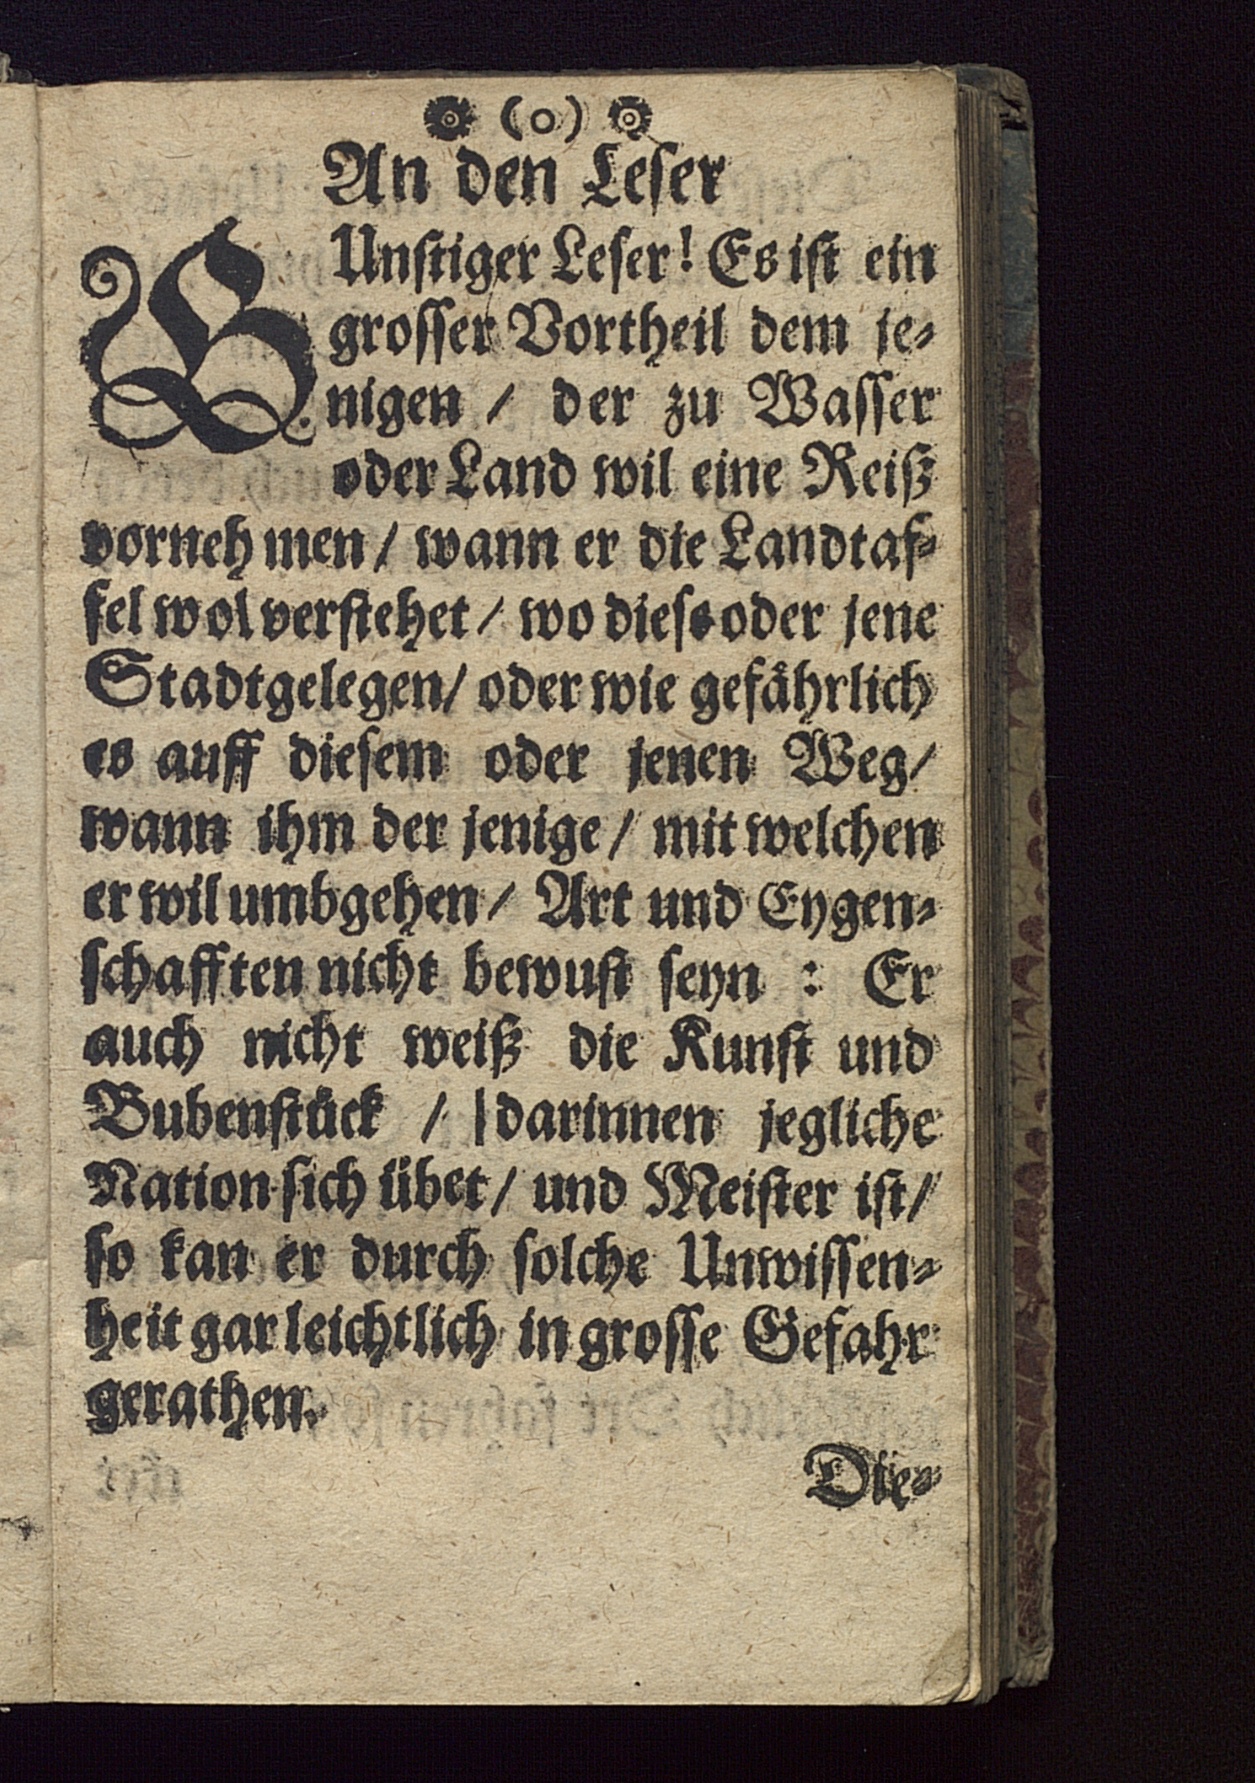 (o)
An den Leser
GUnstiger Leser! Es ist ein
grosser Vortheil dem je-
nigen / der zu Wasser
oder Land wil eine Reiß
vornehmen / wann er die Landtaf-
fel wol verstehet / wo diese oder jene
Stadt gelegen / oder wie gefährlich
es auff diesem oder jenen Weg /
wann ihm der jenige / mit welchen
er wil umbgehen / Art und Eygen-
schafften nicht bewust seyn : Er
auch nicht weiß die Kunst und
Bubenstück / darinnen jegliche
Nation sich übet / und Meister ist /
so kan er durch solche Unwissen-
heit gar leichtlich in grosse Gefahr
gerathen.
Die-